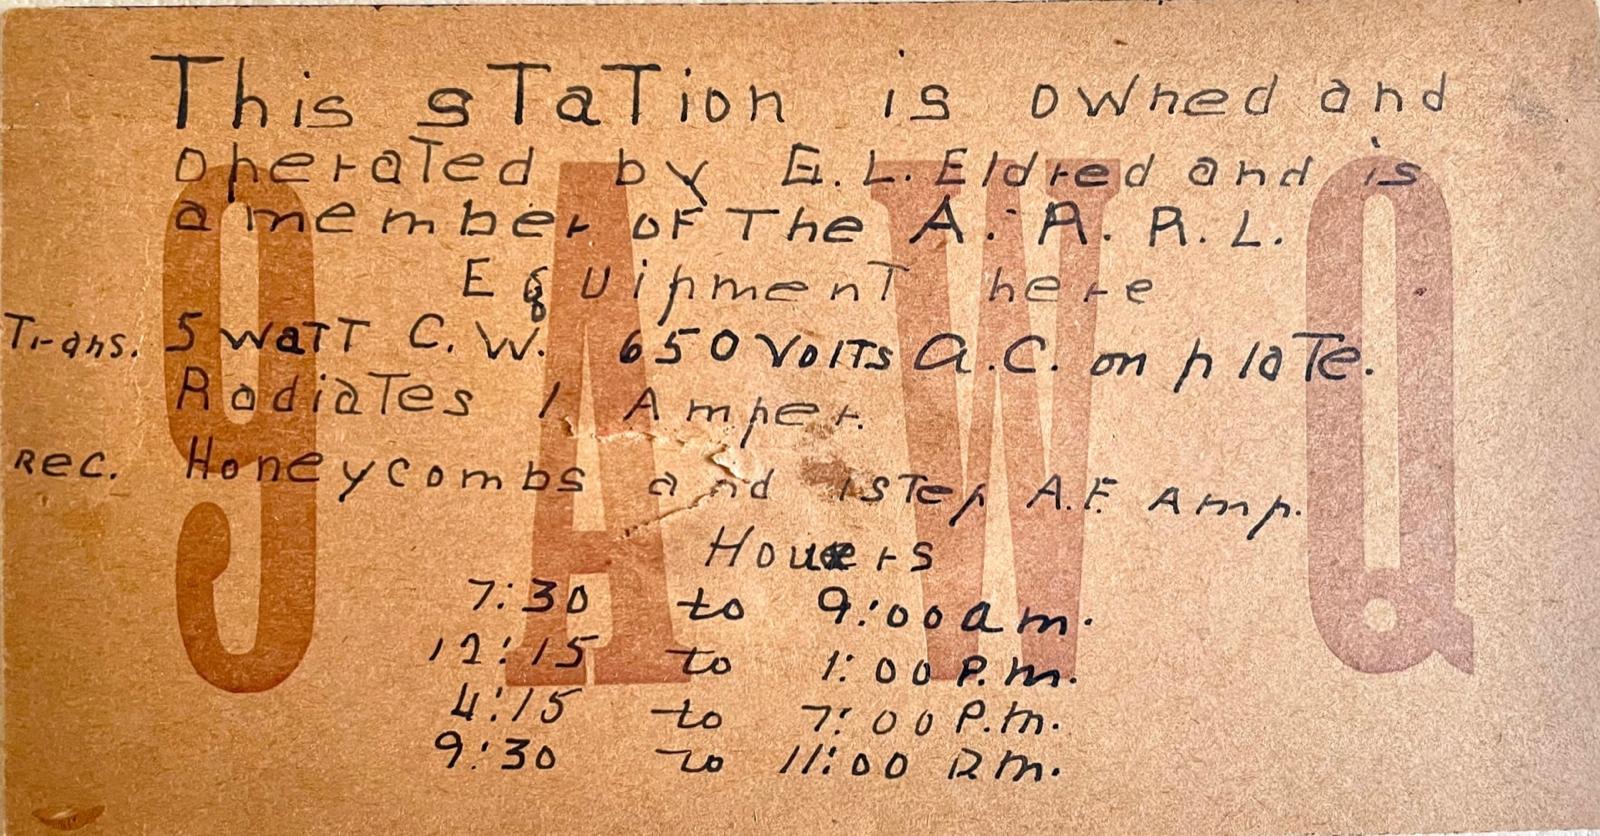 9AWQ
This sTaTion is owned and
operaTed by E.L. Eldred and is
a member oF The A. R. R. L.
EqUipmenT here
Trans. 5 waTT C.W. 650 VolTs a.C. on plaTe.
RadiaTes 1 Amper.
Rec. Honeycombs and 1sTep A.F. Amp.
Houers
7:30 to 9:00 a m.
12:15 to 1:00 P.m.
4:15 to 7:00 P.m.
9:30 to 11:00 P.m.